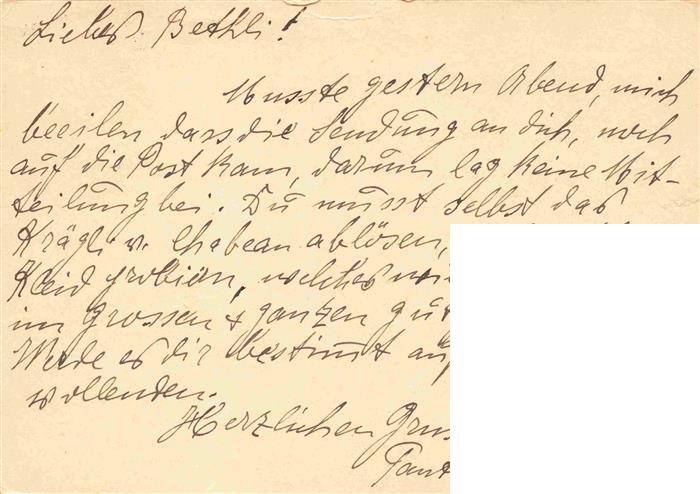 Liebes Bethli!
Musste gestern Abend, mich
beeilen dass die Sendung an dich, noch
auf die Post kam, darum lag keine Mit-
teilung bei. Du musst selbst das
Krägli v. Chabeau ablösen,
Kleid probieren, welches
im grossen + ganzen gut
Werde es dir bestimmt auf
vollenden.
Herzlichen Grus
Tant